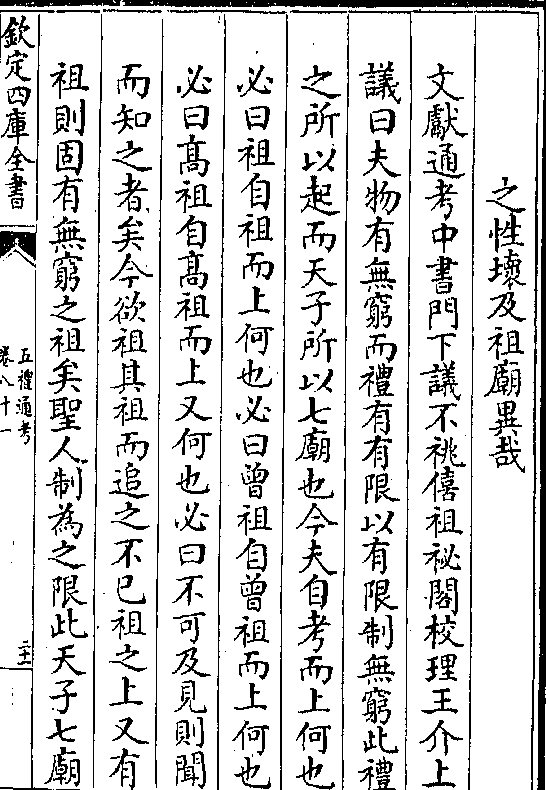 之性壞及祖廟異哉
文獻通考中書門下議不祧僖祖祕閣校理王介上
議曰夫物有無窮而禮有有限以有限制無窮此禮
之所以起而天子所以七廟也今夫自考而上何也
必曰祖自祖而上何也必曰曾祖自曾祖而上何也
必曰髙祖自髙祖而上又何也必曰不可及見則聞
而知之者矣今欲祖其祖而追之不已祖之上又有
祖則固有無窮之祖矣聖人制為之限此天子七廟
欽定四庫全書
五禮通考
卷八十一